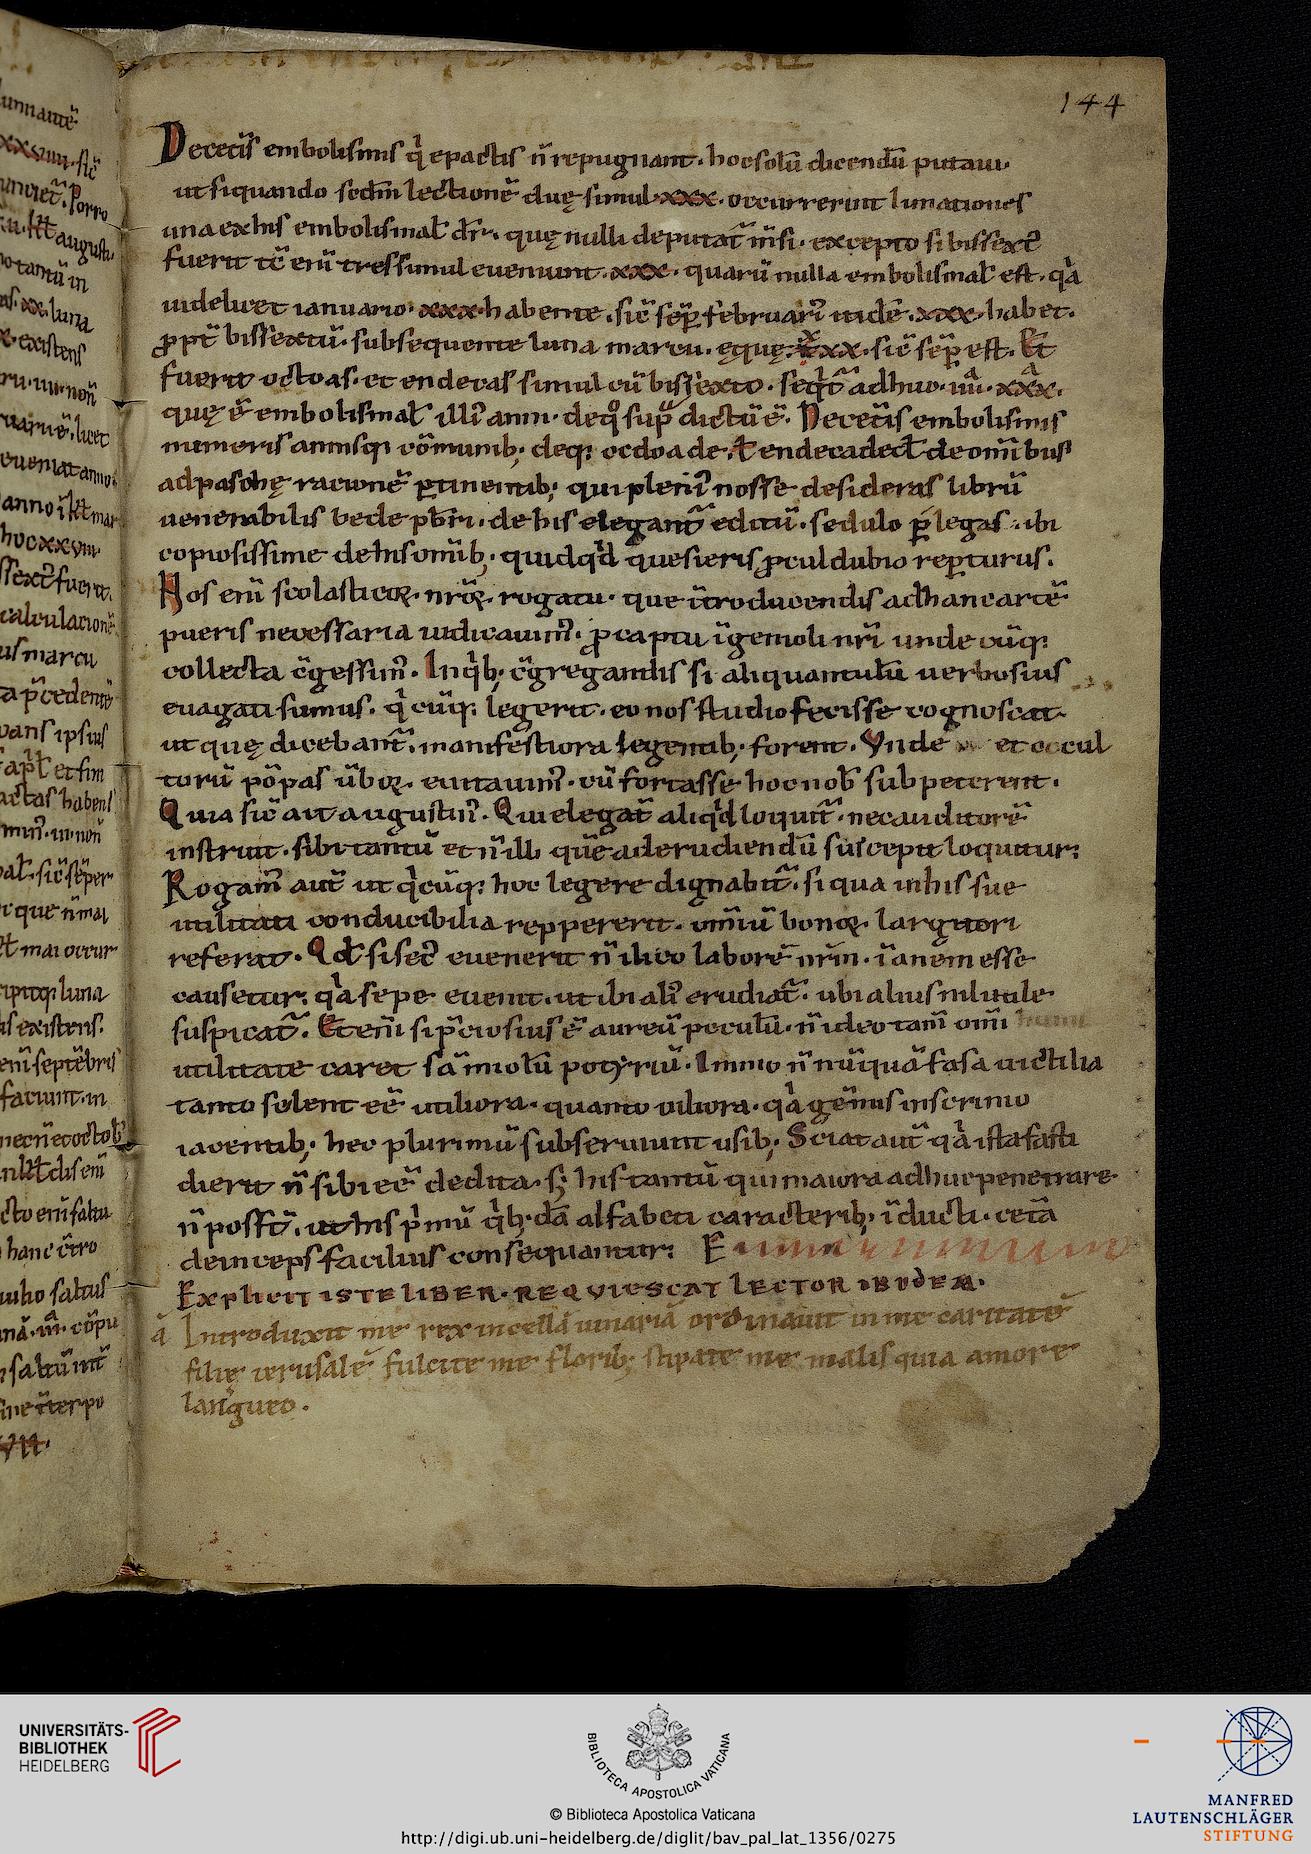 144
Dececis embolismis q̇ epactis n̄ repugnant. hoc solū dicendū putaui.
ut siquando scdm̄ lectionē duę simul xxx. occurrerint lunationes
una ex his embolismal̄ dr̄. quę nulli deputat̄ m̄si. excepto si bissext᷒
fuerit tc̄ eni tres simul eueniunt. xxx. quarū nulla embolismal̄ est. qa
uidelicet ianuario. xxx. habente. sic̄ sep̄ februari᷒ itidē. xxx. habet.
ꝓpt̄ bissextū. subsequente luna marcii. ęquę. xxx. sic̄ sep̄ est. Et
fuerit octoas. et endecas simul cū bissexto. seqt̄ adhuc. iiii. xxx.
quę ē embolismal̄ illi᷒ anni. de q̊ sup̄ dictū ē. Dececis embolismis
numeris annisq; cōmunib; deq; ocdoade. ł endecade. ł de omībus
ad paschę racionē ꝑtinentib; qui pleni᷒ nosse desideras librū
uenerabilis bede pb̄ri. de his elegant̄ editū. sedulo ꝑlegas. ibi
copiosissime de his omīb; quidqd quesieris ꝓcul dubio reꝑturus.
Nos eni scolasticoꝝ. nr̄oꝝ. rogatu. que ītroducendis ad hanc artē
pueris necessaria iudicauim᷒. ꝓ captu īgenioli nr̄i unde cūq;
collecta c̄gessim᷒. In qib; c̄gregandis si aliquantulū uerbosius
euagati sumus. q̇cūq; legerit. eo nos studio fecisse cognoscat
ut quę dicebant̄. manifestiora legentib; forent. Vnde et occul
tiorū pōpas ūboꝝ. euitauim᷒. cū fortasse hoc nob̄ subpeterent.
Quia sic̄ ait augustin᷒. Qui elegāt̄ aliqd loquit̄. nec auditorē
instruit. sibi tantū et n̄ illi quē ad erudiendū suscepit loquitur;
Rogam᷒ aut̄ ut q̇cūq; hoc legere dignabit̄. si qua in his sue
utilitati conducibilia reppererit. omīū bonoꝝ. largitori
referat. Qd̄ si sec᷒ euenerit n̄ ilico laborē nr̄m. īanem esse
causetur; qa sepe euenit. ut ibi ali᷒ erudiat̄. ubi alius nil utile
suspicat̄. Etenī si p̄ciosius ē aureū poculū. n̄ ideo tam̄ omī
utilitate caret samiolū potyriū. Immo n̄ nūquā fasa uictilia
tanto solent eē utiliora. quanto uiliora. qa gēmis in scrinio
iacentib; hec plurimū subseruiunt usib; Sciat aut̄ qa ista fasti
dierit n̄ sibi eē dedita. s; his tantū qui maiora adhuc penetrare
n̄ possūt. ut his p̄mū q̇b;dā alfabeti caracterib; īducti. cetā
deinceps facilius consequantur;
Explicit iste liber. requiescat lector ibidem.
ā Introduxit me rex in cellā uinariā ordinauit in me caritatē
filie ierusalē fulcite me florib; stipate me malis quia amore
langueo.
UNIVERSITÄTS-
BIBLIOTHEK
HEIDELBERG
BIBLIOTECA APOSTOLICA VATICANA
© Biblioteca Apostolica Vaticana
http://digi.ub.uni-heidelberg.de/diglit/bav_pal_lat_1356/0275
MANFRED
LAUTENSCHLÄGER
STIFTUNG